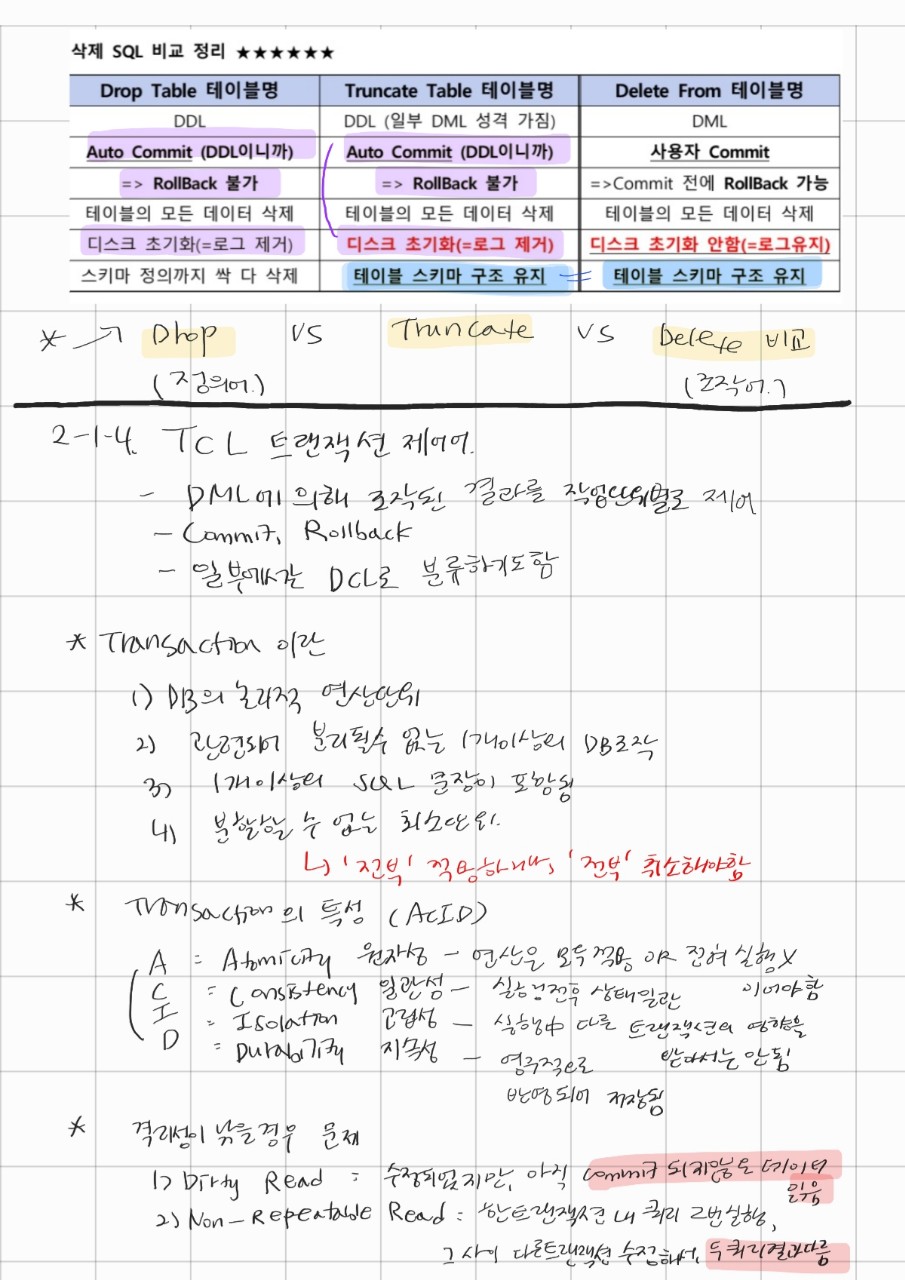 삭제 SQL 비교 정리 ★★★★★★
Drop Table 테이블명 Truncate Table 테이블명 Delete From 테이블명
DDL DDL (일부 DML 성격 가짐) DML
Auto Commit (DDL이니까) Auto Commit (DDL이니까) 사용자 Commit
=> RollBack 불가 => RollBack 불가 =>Commit 전에 RollBack 가능
테이블의 모든 데이터 삭제 테이블의 모든 데이터 삭제 테이블의 모든 데이터 삭제
디스크 초기화(=로그 제거) 디스크 초기화(=로그 제거) 디스크 초기화 안함(=로그유지)
스키마 정의까지 싹 다 삭제 테이블 스키마 구조 유지 = 테이블 스키마 구조 유지
* → Drop VS Truncate VS Delete 비교
(정의어.) (조작어.)
2-1-4. TCL 트랜잭션 제어어.
- DML에 의해 조작된 결과를 작업단위별로 제어
- Commit, Rollback
- 일부에서는 DCL로 분류하기도함
* Transaction 이란
1) DB의 논리적 연산단위
2) 관련되어 분리될수 없는 1개이상의 DB조작
3) 1개이상의 SQL 문장이 포함됨
4) 분할할 수 없는 최소단위.
↳ '전부' 적용하거나, '전부' 취소해야함
* Transaction의 특성 (ACID)
A = Atomicity 원자성 - 연산은 모두적용 OR 전혀 실행X
C = Consistency 일관성 - 실행전후 상태일관 이어야함
I = Isolation 고립성 - 실행中 다른 트랜잭션의 영향을 받아서는 안됨
D = Durability 지속성 - 영구적으로 반영되어 저장됨
* 격리성이 낮을경우 문제
1) Dirty Read = 수정되었지만, 아직 commit 되지않은 데이터 읽음
2) Non-Repeatable Read = 한트랜잭션 내 쿼리 2번실행,
그 사이 다른트랜잭션 수정해서, 두쿼리결과다름